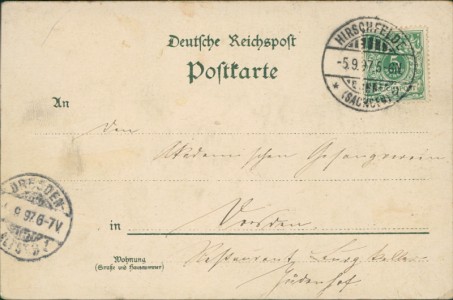 Deutsche Reichspost
Postkarte
HIRSCHFELDE
-5.9.97.5-6N.
(SACHSEN)
5
An
den
Akademischen Gesangverein
DRESDEN-
9.97.6-7V.
in Dresden
Wohnung
(Straße und Hausnummer)
Restaurant
Jüdenhof